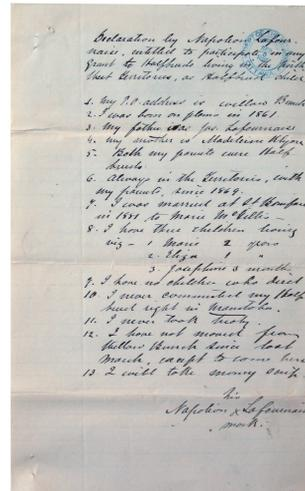 Declaration by Napoleon Lafour-
naise, entitled to participate in any
grant to Halfbreeds living in the North
West Territories, as Halfbreed child
1. My P.O. address is Willow Bunch
2. I was born on plains in 1861.
3. My father was Jas. Lafournaise
4. My mother is Madeleine
5. Both my parents were Half
breeds.
6. Always in the Territories, with
my parents, since 1869.
7. I was married at St Boniface
in 1881 to Marie McGillis -
8. I have three children living
viz - 1 Marie 2 years
2. Eliza 1 "
3. Josephine 3 months
9. I have no children who died
10. I never commuted my Half
breed right in Manitoba.
11. I never took treaty.
12. I have not moved from
Willow Bunch since last
March, except to come here
13 I will take money scrip
his
Napoleon x Lafournaise
mark.